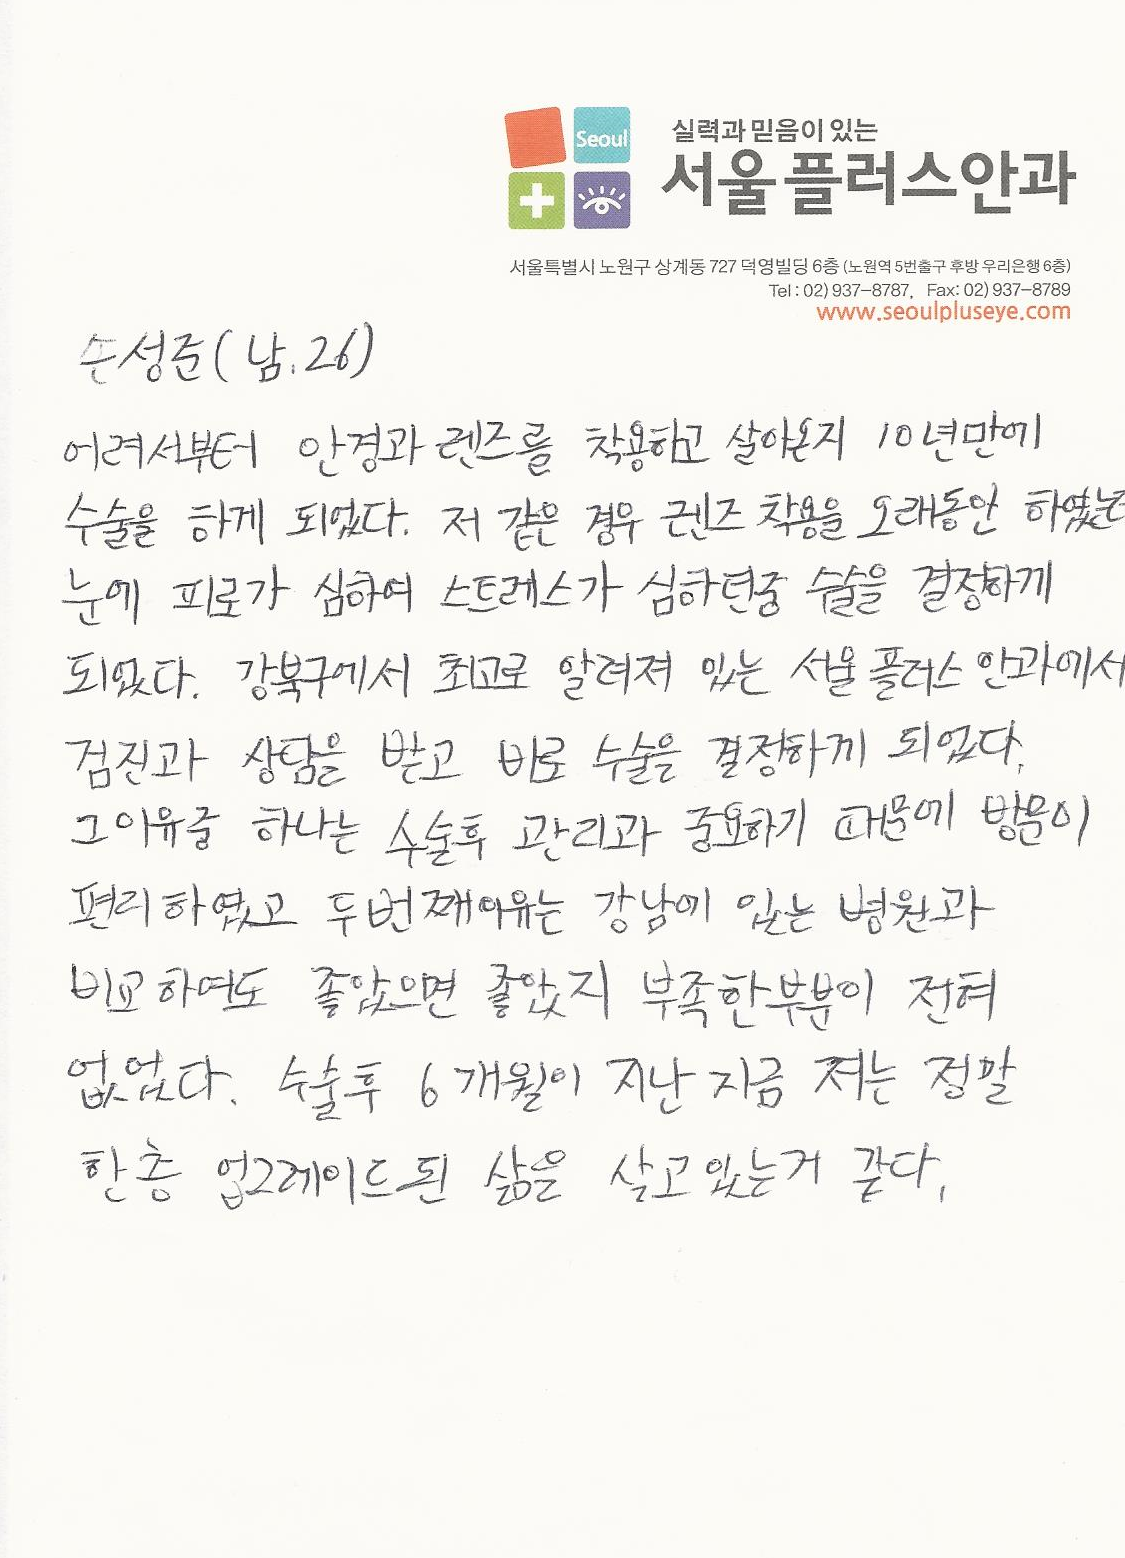 Seoul
실력과 믿음이 있는
서울플러스안과
서울특별시 노원구 상계동 727 덕영빌딩 6층 (노원역 5번출구 후방 우리은행 6층)
Tel : 02) 937-8787,   Fax: 02) 937-8789
www.seoulpluseye.com
손성준 ( 남. 26)
어려서부터 안경과 렌즈를 착용하고 살아온지 10년만에
수술을 하게 되었다. 저 같은 경우 렌즈 착용을 오래동안 하였는
눈에 피로가 심하여 스트레스가 심하던중 수술을 결정하게
되었다. 강북구에서 최고로 알려져 있는 서울플러스 안과에서
검진과 상담을 받고 바로 수술을 결정하게 되었다.
그 이유중 하나는 수술후 관리과 중요하기 때문에 방문이
편리하였고 두번째이유는 강남에 있는 병원과
비교하여도 좋았으면 좋았지 부족한부분이 전혀
없었다. 수술후 6개월이 지난 지금 저는 정말
한층 업그레이드된 삶을 살고있는거 같다.